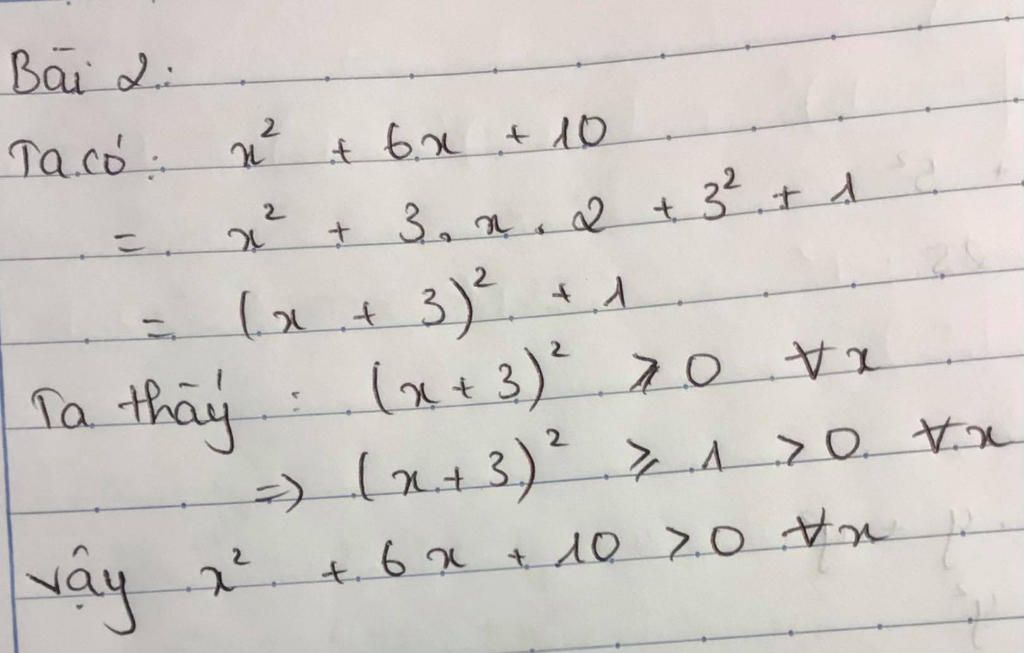 Bài 2:
Ta có: x² + 6x + 10
= x² + 3.x.2 + 3² + 1
= (x + 3)² + 1
Ta thấy: (x+3)² ≥ 0 ∀x
=> (x+3)² ≥ 1 > 0 ∀x
vậy x² + 6x + 10 > 0 ∀x